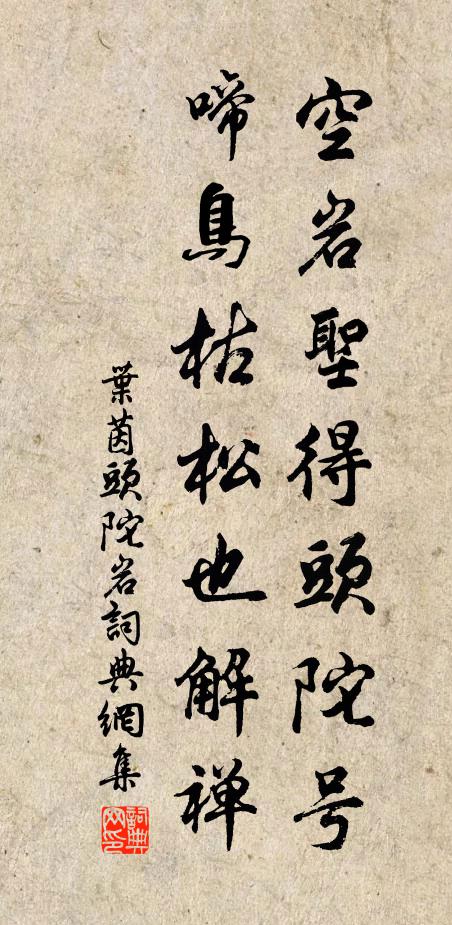 空岩聖得頭陀号
啼鳥枯松也解禅
葉茵頭陀岩詞典網集
詞典网印